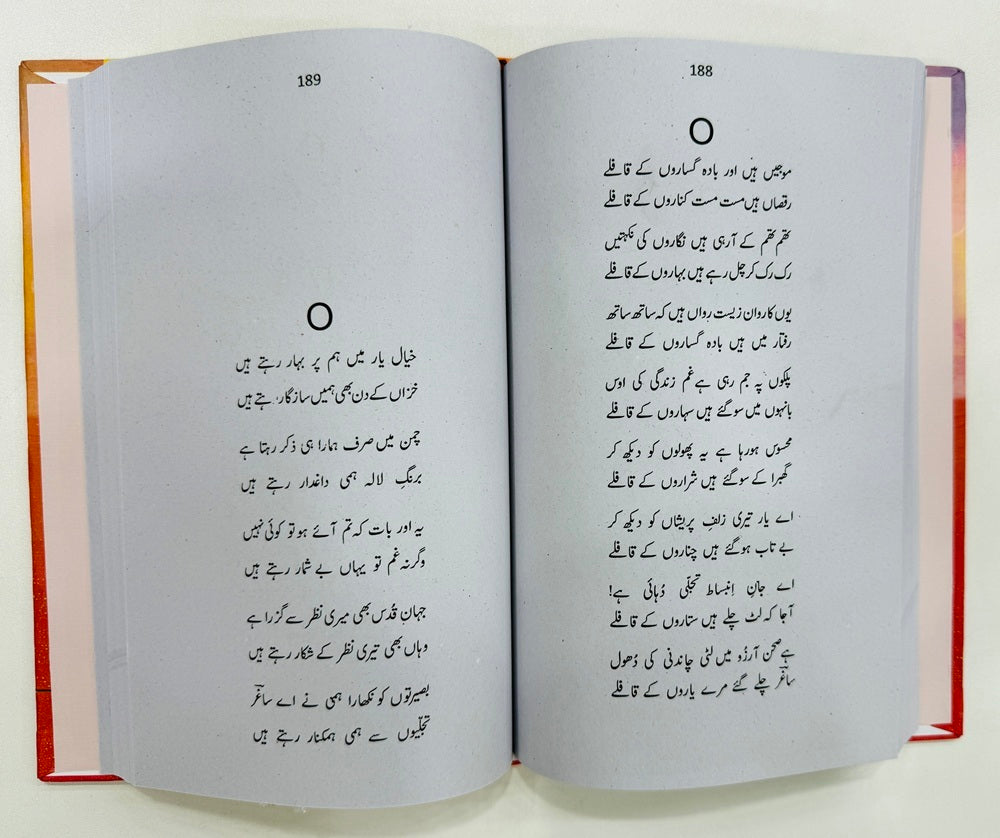 188
O
موجیں ہیں اور بادہ گساروں کے قافلے
رقصاں ہیں مست مست کناروں کے قافلے
تھم تھم کے آرہی ہیں نگاروں کی نکہتیں
رک رک کر چل رہے ہیں بہاروں کے قافلے
یوں کاروان زیست رواں ہیں کہ ساتھ ساتھ
رفتار میں ہیں بادہ گساروں کے قافلے
پلکوں پہ جم رہی ہے غم زندگی کی اوس
بانہوں میں سوگئے ہیں سہاروں کے قافلے
محسوس ہورہا ہے یہ پھولوں کو دیکھ کر
گھبرا کے سوگئے ہیں شراروں کے قافلے
اے یار تیری زلفِ پریشاں کو دیکھ کر
بے تاب ہوگئے ہیں چناروں کے قافلے
اے جانِ اِنبساط تجلّی دُہائی ہے!
آجا کہ لٹ چلے ہیں ستاروں کے قافلے
ہے صحن آرزُو میں لٹی چاندنی کی دُھول
ساغرؔ چلے گئے مرے یاروں کے قافلے
189
O
خیال یار میں ہم پر بہار رہتے ہیں
خزاں کے دن بھی ہمیں سازگار ہتے ہیں
چمن میں صرف ہمارا ہی ذکر رہتا ہے
برنگِ لالہ ہمی داغدار رہتے ہیں
یہ اور بات کہ تم آئے ہو تو کوئی نہیں
وگرنہ غم تو یہاں بے شمار رہتے ہیں
جہانِ قُدس بھی میری نظر سے گزرا ہے
وہاں بھی تیری نظر کے شکار رہتے ہیں
بصیرتوں کو نکھارا ہمی نے اے ساغرؔ
تجلّیوں سے ہمی ہمکنار رہتے ہیں